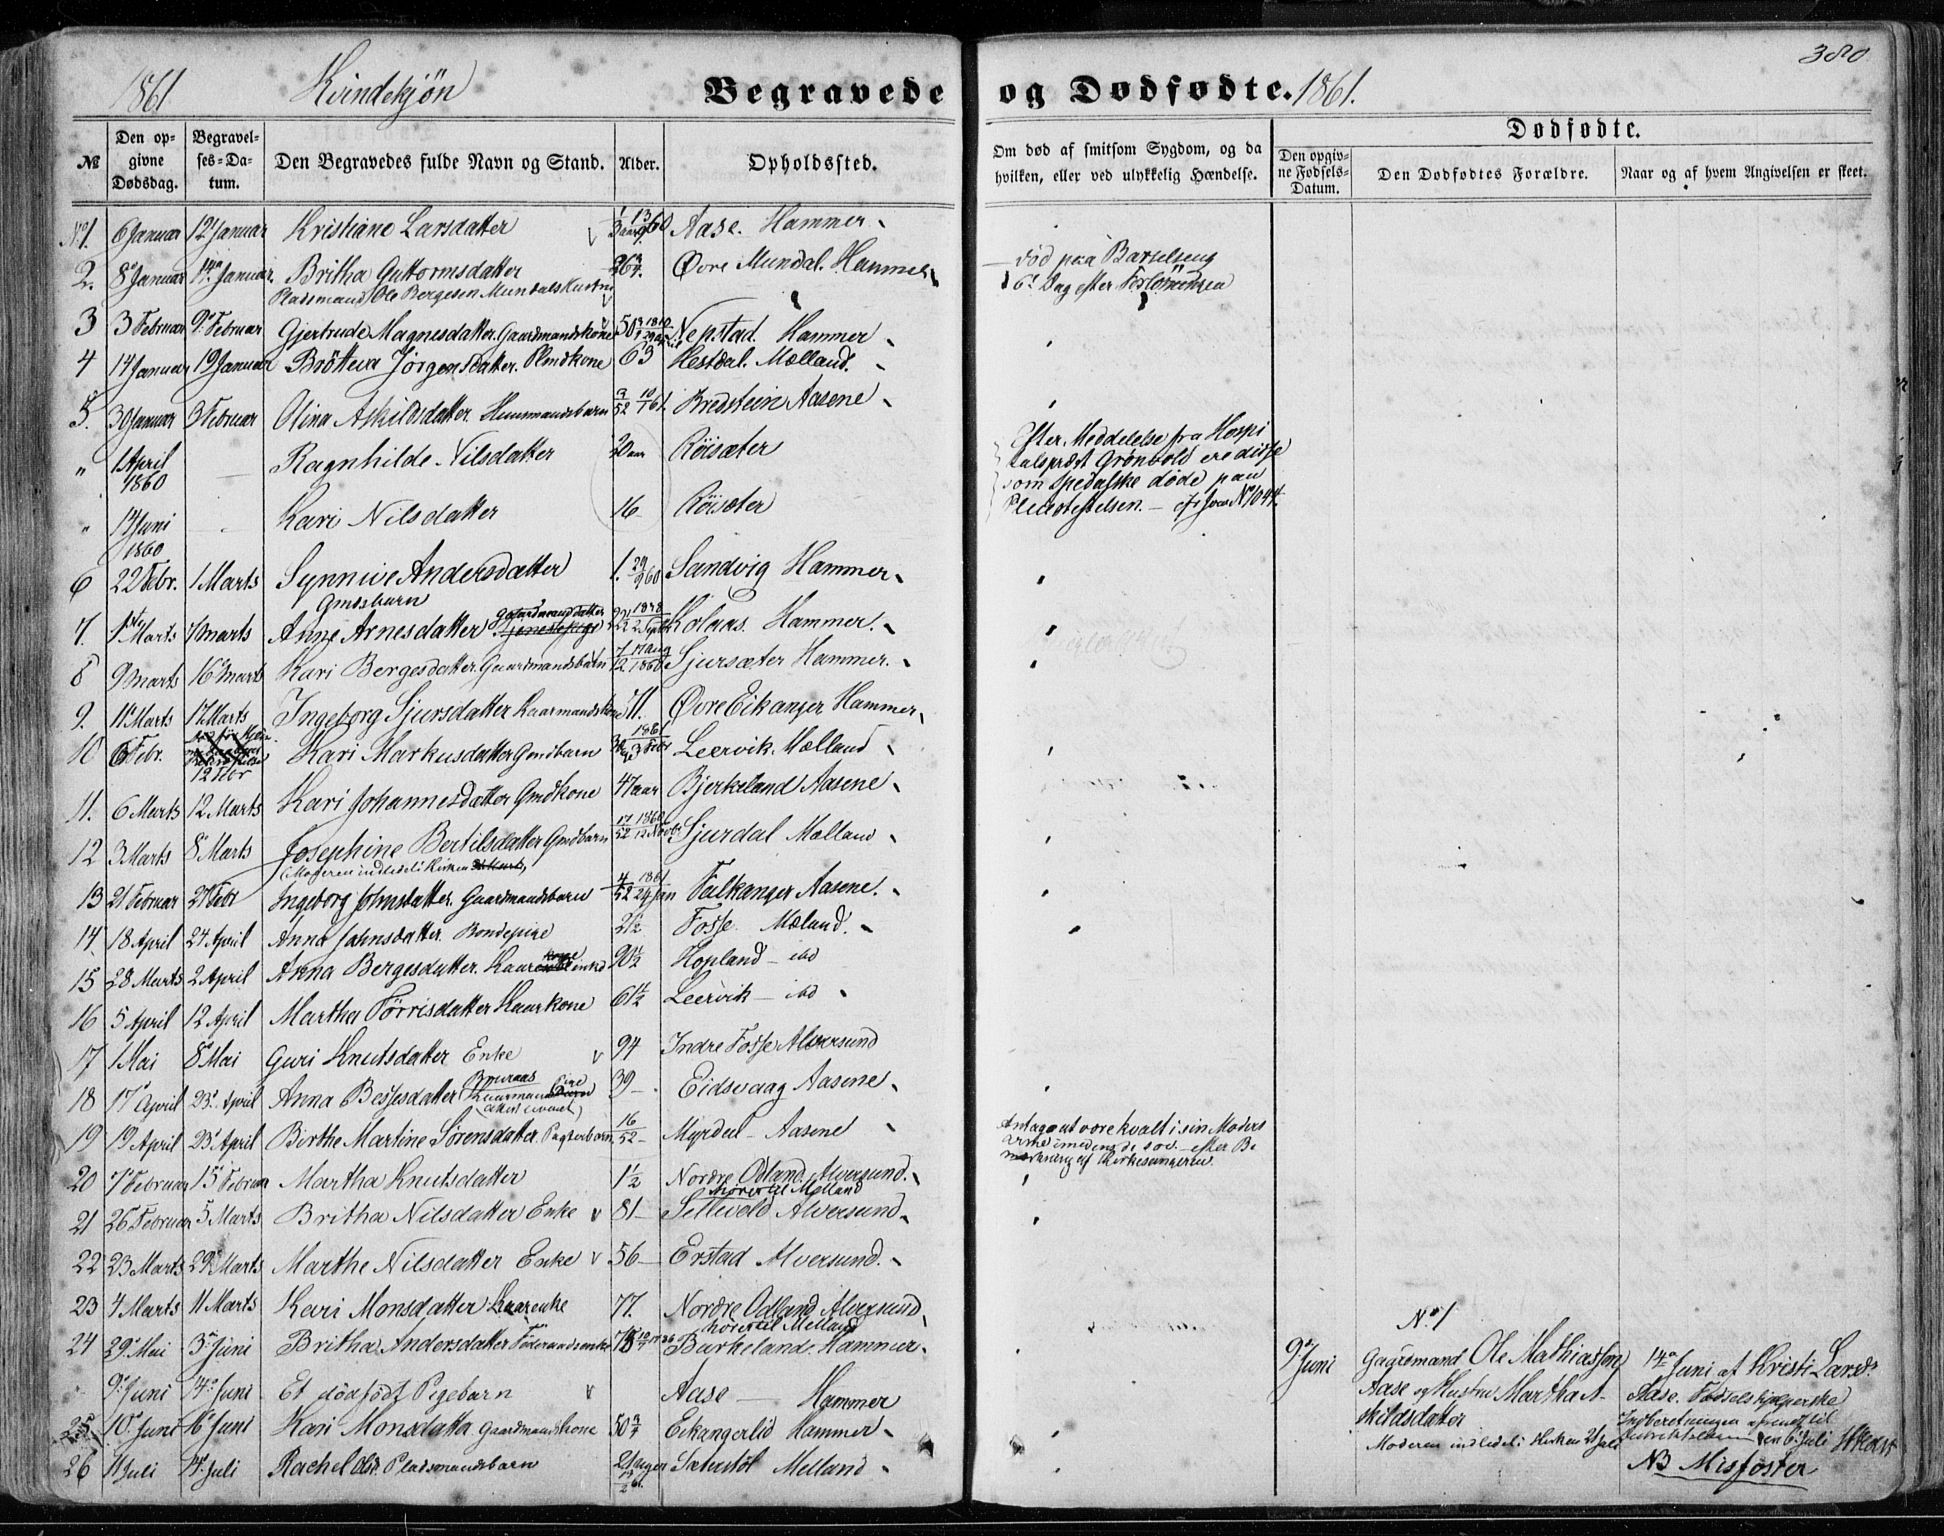 380
1861 Kvindekjøn Begravede og Dødfødte. 1861.
Dødfødte.
No
Den opgivne Dødsdag.
Begravelses-Datum.
Den Begravedes fulde Navn og Stand.
Alder.
Opholdssted.
Om død af smitsom Sygdom, og da hvilken, eller ved ulykkelig Hændelse.
Den opgivne Fødsels-Datum.
Den Dødfødtes Forældre.
Naar og af hvem Angivelsen er skeet.
No 1. 6 Januar 12 Januar Kristiane Larsdatter Aase. Hammer
2. 8 Januar 14 Januar. Britha Guttormsdatter 26 Øvre Mundal. Hammer død paa Barselseng
Pladsmand Ole Bergesen Mundals Kustru 6 Dag efter
3 3 Februar 9 Februar Gjertrude Magnesdatter. Gaardmandskone 50 Nepstad. Hammer
4 14 Januar 19 Januar Jørgensdatter. 63 Hestdal. Mælland.
5. 30 Januar 3 Februar Olina Askildsdatter. Huusmandsbarn Bredstein Aasene
" 1 April 1860 Ragnhilde Nilsdatter 20 aar Röisæter
Efter Meddelelse fra Hospi
talspræst Grønvold ere disse
som spedalske døde paa
Pleiestiftelsen.
" 14 Juni 1860 Kari Nilsdatter 16 Röisæter
6 22 Febr. 1 Marts Synnive Andersdatter 1. 29/9 60 Sandvig Hammer
Gmdsbarn
7. 1 Marts 7 Marts Anne Arnesdatter Gaardmanddatter 22 1838 Kolaas. Hammer.
8 9 Marts 16 Marts Kari Bergesdatter. Gaardmandsbarn 7/12 17 Aug 1860 Sjursæter Hammer.
9. 11 Marts 17 Marts Ingeborg Sjursdatter Kaarmandskone 71. Øvre Eikanger Hammer
10 6 Febr. 12 Febr Kari Markusdatter Gmdbarn 1861 3 Febr Leervik. Mælland
11. 6 Marts 12 Marts Kari Johannesdatter Gmdkone 47 aar Bjerkeland Aasene
12 3 Marts 8 Marts Josephine Bertilsdatter Gmdbarn 17/52 1860 12 Novbr Sjurdal Mælland
(Moderen indledet i Kirken
13 21 Februar 27 Febr Ingeborg Johnsdatter. Gaardmandsbarn 4/52 1861 24 Jan Falkanger Aasene.
14. 18 April 24 April Anna Johnsdatter. Bondepige 21½ Fosse. Mæland.
15 28 Marts 2 April Anna Bergesdatter. 90½ Hopland - ibd
16 5 April 12 April Martha Törrisdatter Kaarkone 61½ Leervik - ibd
17 1 Mai 8 Mai Guri Knutsdatter Enke 94 Indre Fosse Alversund
18 17 April 23 April Anna Bessesdatter 39 - Eidsvaag Aasene
19 19 April 23 April Birthe Martine Sörensdatter. Pagterbarn 16/52 Myrdal - Aasene
Antages at være kvalt i sin Moders
Arme imedens de sov. - efter Be
mærkning af Kirkesangeren.
20 7 Februar 15 Februar Martha Knutsdatter 1½ Nordre Odland. Alversund.
hører til Melland
21 26 Februar 5 Marts Britha Nilsdatter Enke 81 - Sellevold Alversund
22 23 Marts 29 Marts Marthe Nilsdatter Enke 56 - Erstad Alversund.
23 4 Marts 11 Marts Kari Monsdatter Kaarenke 77. Nordre Odland Alversund
hører til Melland
24 29 Mai 3 Juni Britha Andersdatter Föderaadsenke Birkeland. Hammer
9 Juni 14 Juni Et dødfødt Pigebarn Aase - Hammer
No 1
9 Juni Gaardmand Ole Mathiassen
Aase og Hustru Martha A-
skildsdatter
Moderen indledet i Kirken 21 Juli
14 Juni af Kristi Larsd.
Aase. Fødselshjælperske
Indberetningen afsendt til
den 6 Juli
NB Misfoster
25 10 Juni 16 Juni Kari Monsdatter Gaardmandskone 50 ¾ Eikangerlid Hammer
26 11 Juli 14 Juli Rachel Olsd. Pladsmandsbarn 21 dager Sæterstöl Melland